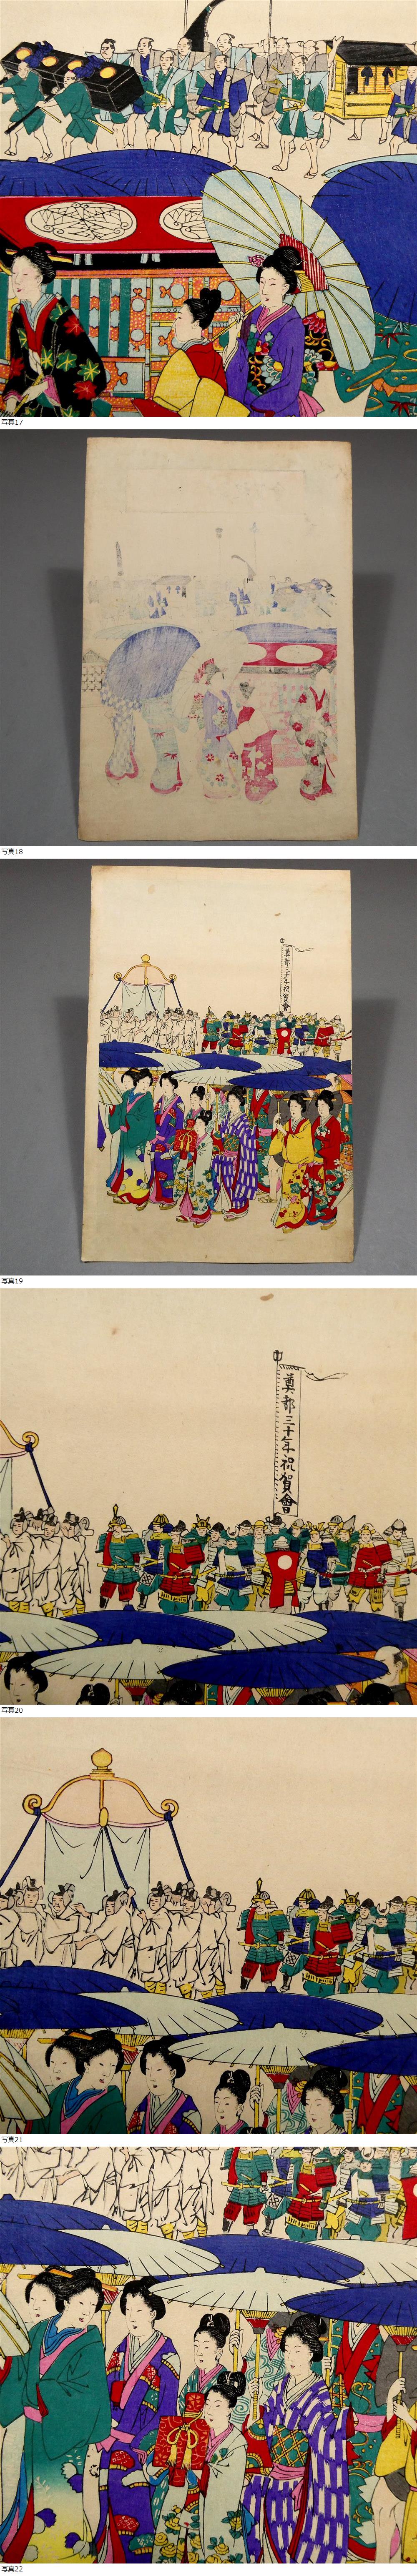 写真17
写真18
奠都三十年祝賀會
写真19
奠都三十年祝賀會
写真20
写真21
写真22